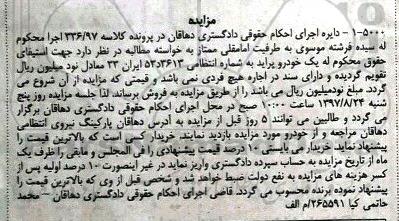 مزایده
۵۰۰۰-۱- دایره اجرای احکام حقوقی دادگستری دهاقان در پرونده کلاسه ۳۳۶/۹۷ اجرا محکوم
له سیده فرشته موسوی به طرفیت امامقلی ممتاز به خواسته مطالبه در نظر دارد جهت استیفای
حقوق محکوم له یک خودرو پراید به شماره انتظامی ۵۳-۳۶۱۳ ایران ۳۳ معادل نود میلیون ریال
تقویم گردیده و دارای سند در اجاره هیچ فردی نمی باشد و قیمتی که مزایده از آن شروع می
گردد. مبلغ نودمیلیون ریال می باشد را از طریق مزایده به فروش برساند. لذا جلسه مزایده روز پنج
شنبه ۱۳۹۷/۸/۲۴ ساعت ۱۰:۰۰ صبح در محل اجرای احکام حقوقی دادگستری دهاقان برگزار
می گردد و طالبین می توانند ۵ روز قبل از مزایده به آدرس دهاقان پارکینگ نیروی انتظامی
دهاقان مراجعه و از خودرو مورد مزایده بازدید نمایند. خریدار کسی است که بالاترین قیمت را
پیشنهاد نماید. خریدار می بایستی ۱۰ درصد قیمت پیشنهادی را فی المجلس و مابقی را ظرف یک
ماه از تاریخ مزایده به حساب سپرده دادگستری واریز نماید در غیر اینصورت ۱۰ درصد اولیه پس از
کسر هزینه های مزایده به نفع دولت ضبط خواهد شد و شخص قبل از وی که بالاترین قیمت را
پیشنهاد نموده برنده محسوب می گردد. قاضی اجرای احکام حقوقی دادگستری دهاقان – محمد
حاتمی کیا ۲۶۵۵۹۱/م الف